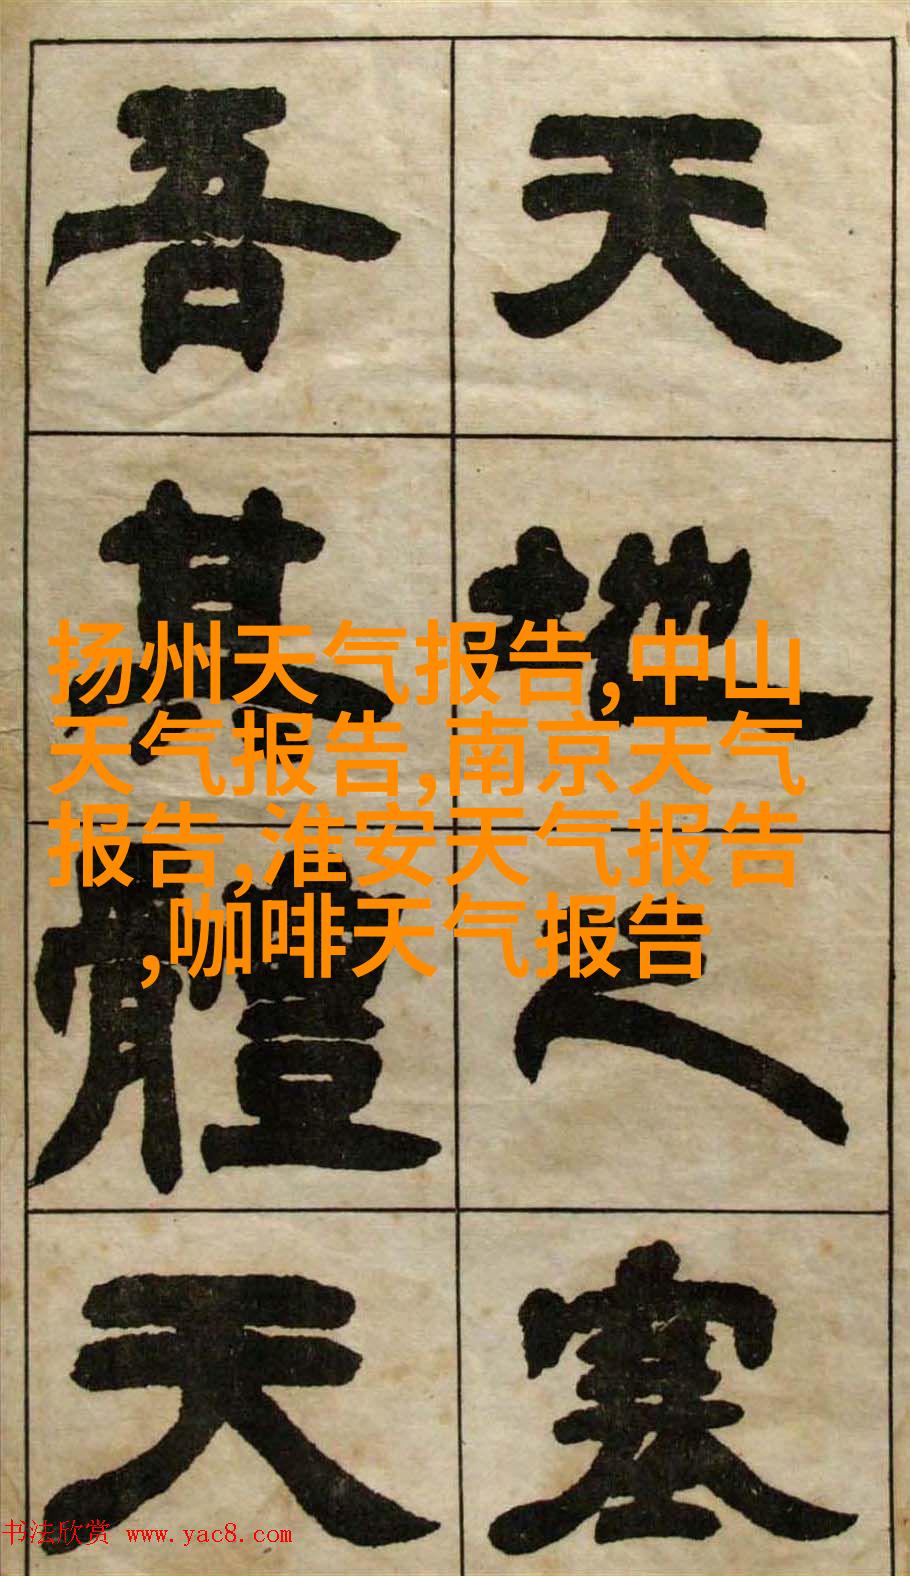 天地之塞
吾其體天
扬州天气报告,中山
天气报告,南京天气
报告,淮安天气报告
,咖啡天气报告
书法欣赏 www.yac8.com